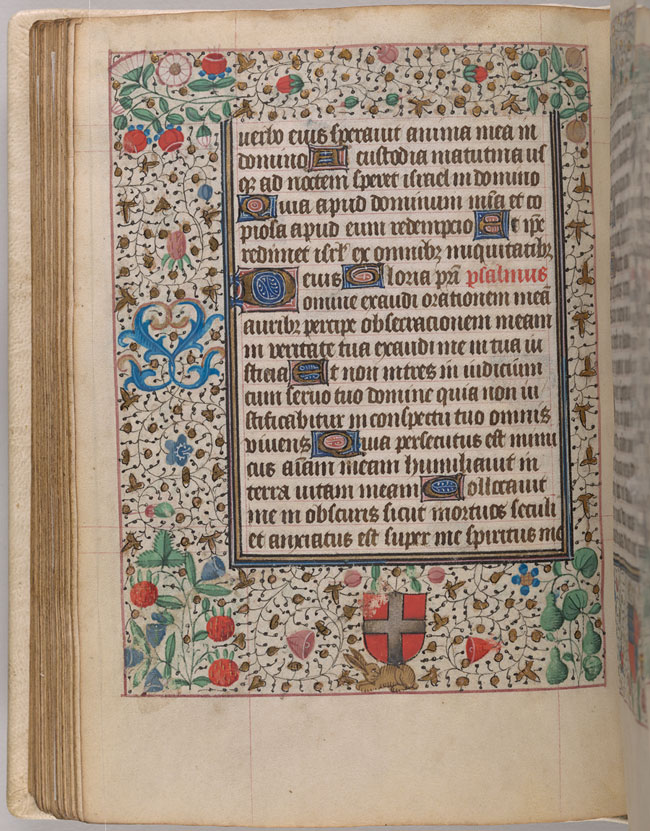 uerbo eius sperauit anima mea in
domino A custodia matutina us
qȝ ad noctem speret israel in domino
Quia apud dominum mīa et co
piosa apud eum redempcio Et ipē
redimet isrł ex omnibȝ iniquitatibȝ
eius Gloria pr̄i psalmus
Domine exaudi orationem meā
auribȝ percipe obsecracionem meam
in veritate tua exaudi me in tua iu
sticia Et non intres in iudicium
cum seruo tuo domine quia non iu
stificabitur in conspectu tuo omnis
viuens Quia persecutus est inimi
cus aīam meam humiliauit in
terra uitam meam Collocauit
me in obscuris sicut mortuos seculi
et anxiatus est super me spiritus me